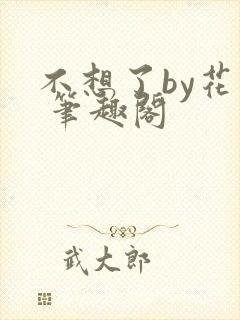 不想了by花
笔趣阁
武大郎